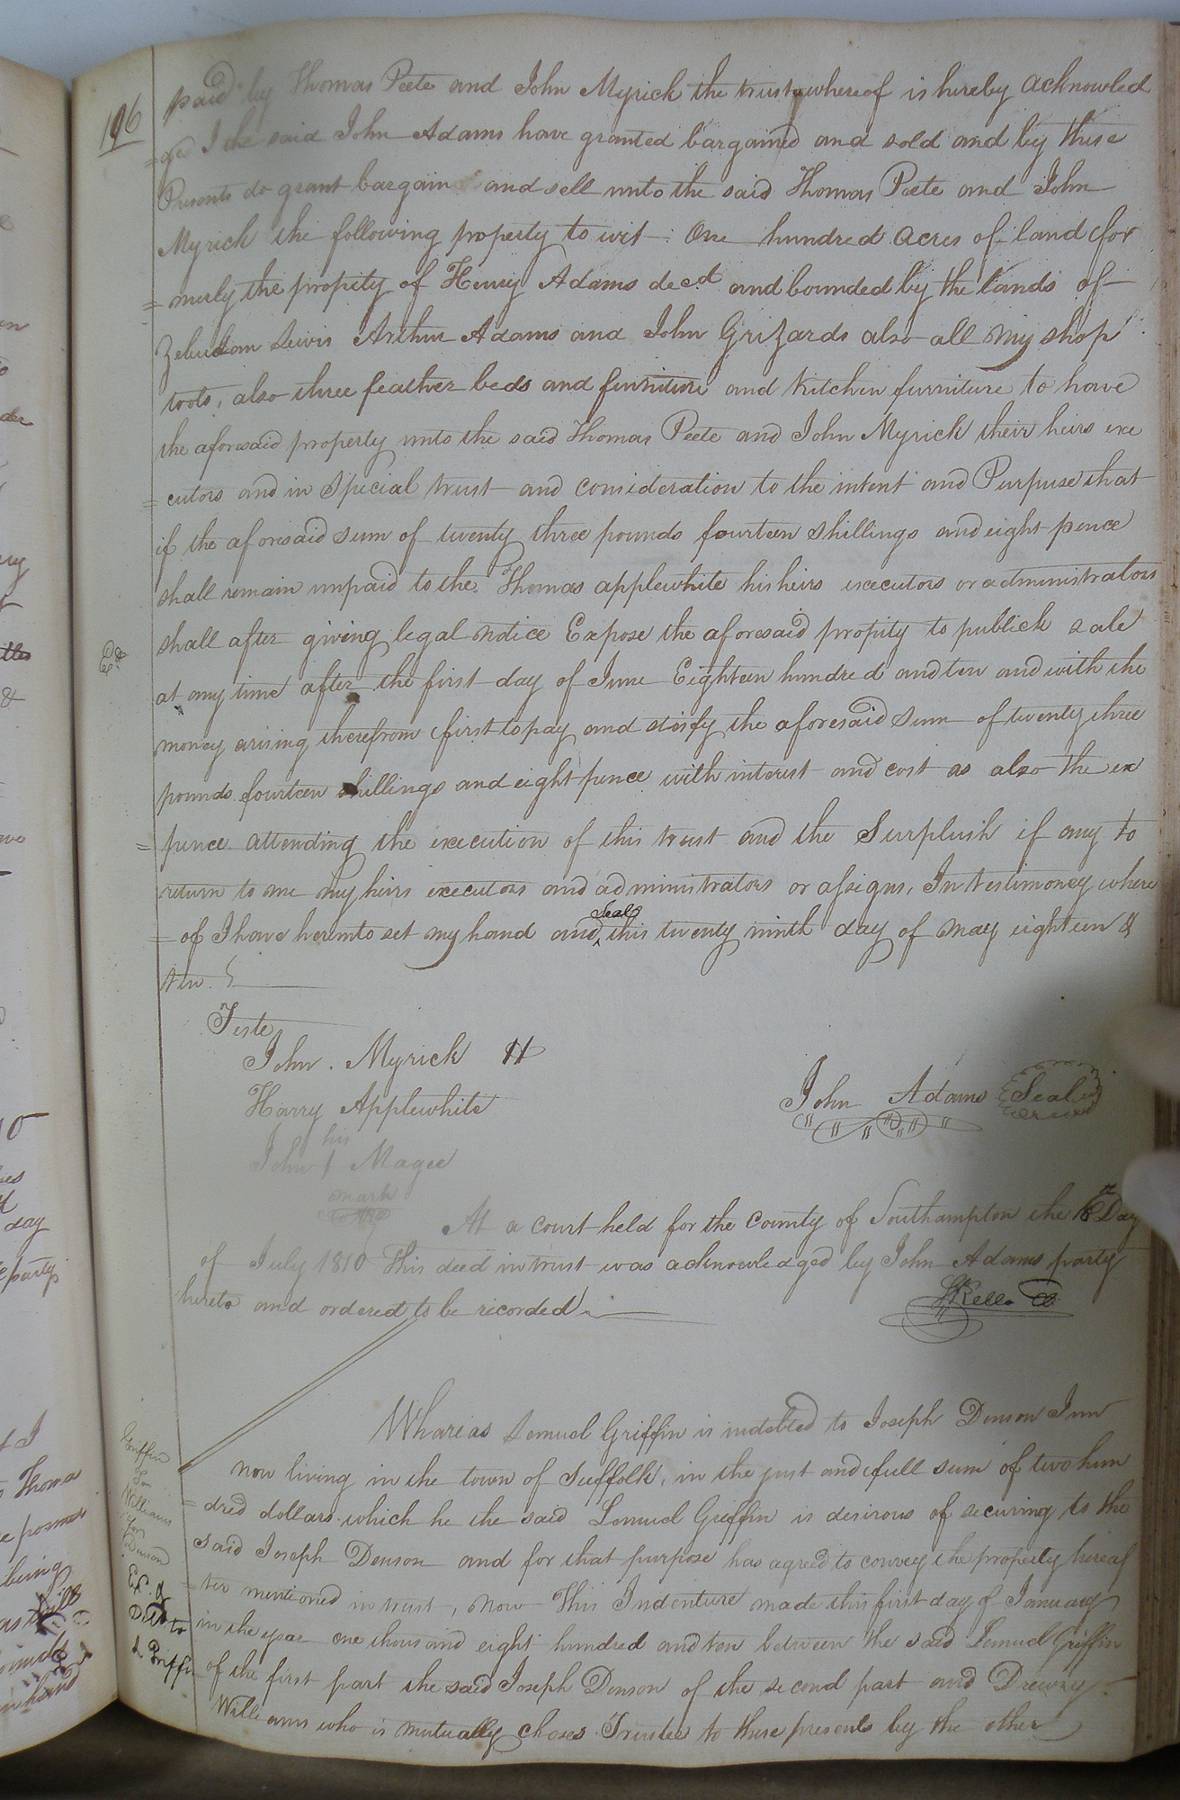 196
paid by Thomas Peete and John Myrick the trusty whereof is hereby acknowled
=ge I the said John Adams have granted bargained and sold and by these
Presents do grant bargain and sell unto the said Thomas Peete and John
Myrick the following property to wit: One hundred acres of land for
=merly the propity of Henry Adams decd and bounded by the lands of
Zebulom Lewis Arthur Adams and John Grizards also all my shop
tools, also three feather beds and furniture and kitchin furniture to have
the aforesaid property unto the said Thomas Peete and John Myrick their heirs exe
=cutors and in Special trust and consideration to the intent and Purpuse that
if the aforesaid sum of twenty three pounds fourteen shillings and eight pence
shall remain unpaid to the Thomas applewhite his heirs executors or administrators
shall after giving legal notice Expose the aforesaid propity to publick sale
Ed
at any time after the first day of June Eighteen hundred and ten and with the
money arising therefrom first to pay and stisfy the aforesaid sum of twenty three
pounds fourteen shillings and eight pence with interest and cost as also the ex
=pence attending the execution of this trust and the Surplush if any to
return to me my heirs executors and administrators or assigns, In testimoney where
=of I have hereunto set my hand and Seal this twenty ninth day of may eighteen &
ten
Teste
John. Myrick
Harry Applewhite
John his Magee
mark
John Adams Seal
At a court held for the County of Southampton the 18th Day
of July 1810 This deed in trust was acknowledged by John Adams party
hereto and ordered to be recorded
Rello
Whareas Lemuel Griffin is indebted to Joseph Denson Junr
now living in the town of Suffolk, in the just and full sum of two hun
=dred dollars which he the said Lemuel Griffin is desirous of securing to the
said Joseph Denson and for that purpose has agreed to convey the property hereaf
=ter mentioned in trust, Now This Indenture made this first day of January
in the year one thousand eight hundred and ten between the said Lemuel Griffin
of the first part the said Joseph Denson of the second part and Drewry
Williams who is mutually choses Trustee to these presents by the other
Griffin
To
Williams
for
Denson
Ex. &
Dd to
L Griffin